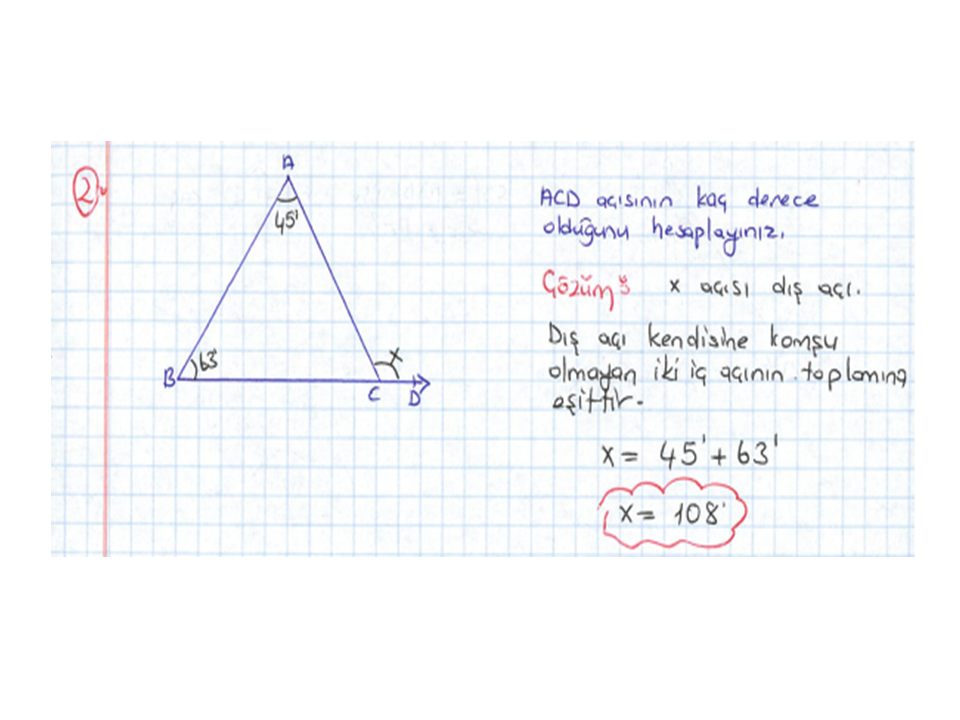 2
A
45'
B
63'
x
C
D
ACD açısının kaç derece
olduğunu hesaplayınız.
Çözüm: x açısı dış açı.
Dış açı kendisine komşu
olmayan iki iç açının toplamına
eşittir.
x = 45' + 63'
x = 108'